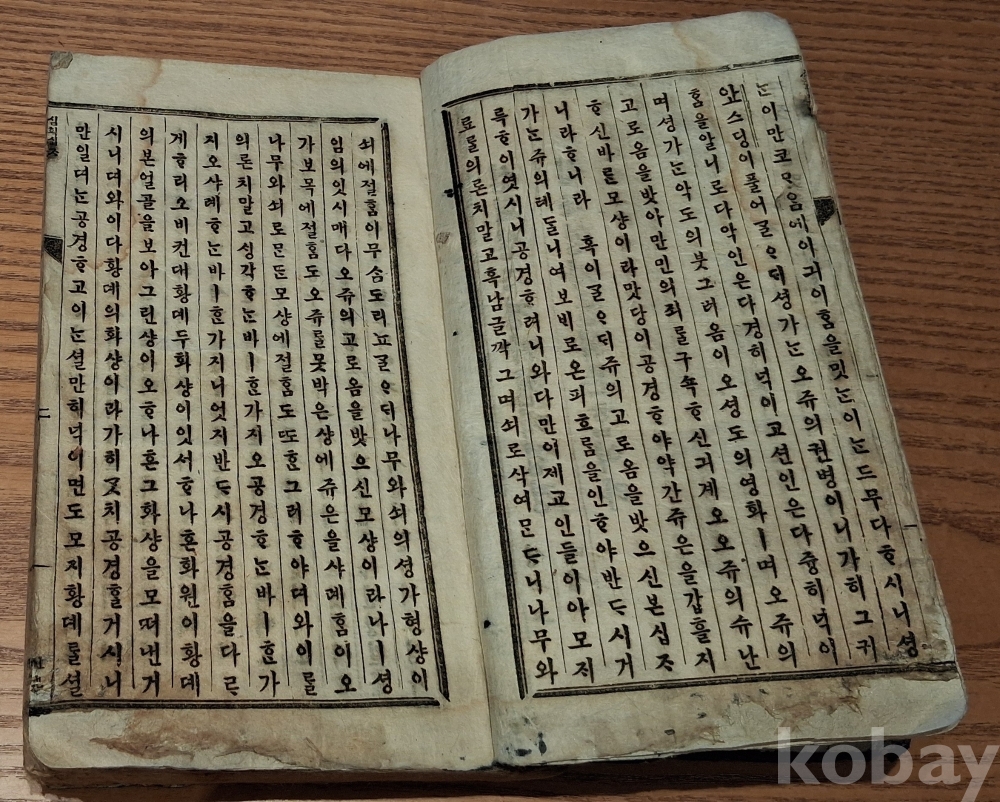 ᄂᆞᆫ이만코ᄆᆞᄋᆞᆷ에이긔이홈을밋ᄂᆞᆫ이ᄂᆞᆫ드무다ᄒᆞ시니셩
안스딩이풀어ᄀᆞᆯᄋᆞᄃᆡ셩가ᄂᆞᆫ오쥬의권병이니가히그귀
홈을알니로다악인은다경히넉이고션인은다즁히넉이
며셩가ᄂᆞᆫ악도의붓그러옴이오셩도의영화ㅣ며오쥬의
고로옴을밧아만민의죄ᄅᆞᆯ구쇽ᄒᆞ신긔계오오쥬의슈난
ᄒᆞ신바ᄅᆞᆯ모샹이라맛당이공경ᄒᆞ야약간쥬은을갑흘지
니라ᄒᆞ니라 혹이ᄀᆞᆯᄋᆞᄃᆡ쥬의고로옴을밧으신본십ᄌᆞ
가ᄂᆞᆫ쥬의톄둘니여보비로온피흐룸을인ᄒᆞ야반ᄃᆞ시거
륵ᄒᆞ이엿시니공경ᄒᆞ려니와다만이제교인들이아모저
료ᄅᆞᆯ의론치말고혹남글깍그며쇠로삭여ᄆᆞᆫᄃᆞ니나무와
쇠에절홈이무ᄉᆞᆷ도리뇨ᄀᆞᆯᄋᆞᄃᆡ나무와쇠의셩가형샹이
임의잇시매다오쥬의고로옴을밧으신모샹이라나ㅣ셩
가보목에절홈도오쥬ᄅᆞᆯ못박은상에쥬은을샤례홈이오
나무와쇠로ᄆᆞᆫᄃᆞᆫ모샹에절홈도ᄯᅩᄒᆞᆫ그러ᄒᆞ야뎌와이ᄅᆞᆯ
의론치말고ᄉᆡᆼ각ᄒᆞᄂᆞᆫ바ㅣᄒᆞᆫ가지오공경ᄒᆞᄂᆞᆫ바ㅣᄒᆞᆫ가
지오샤례ᄒᆞᄂᆞᆫ바ㅣᄒᆞᆫ가지니엇지반ᄃᆞ시공경홈을다ᄅᆞ
게ᄒᆞ리소비컨대황뎨두화샹이잇서ᄒᆞ나흔화원이황뎨
의본얼골을보아그린샹이오ᄒᆞ나흔그화샹을모떠낸거
시니뎌와이다황뎨의화샹이라가히ᄀᆞᆺ치공경ᄒᆞᆯ거시니
만일뎌ᄂᆞᆫ공경ᄒᆞ고이ᄂᆞᆫ셜만히넉이면도모지황뎨ᄅᆞᆯ셜
kobay